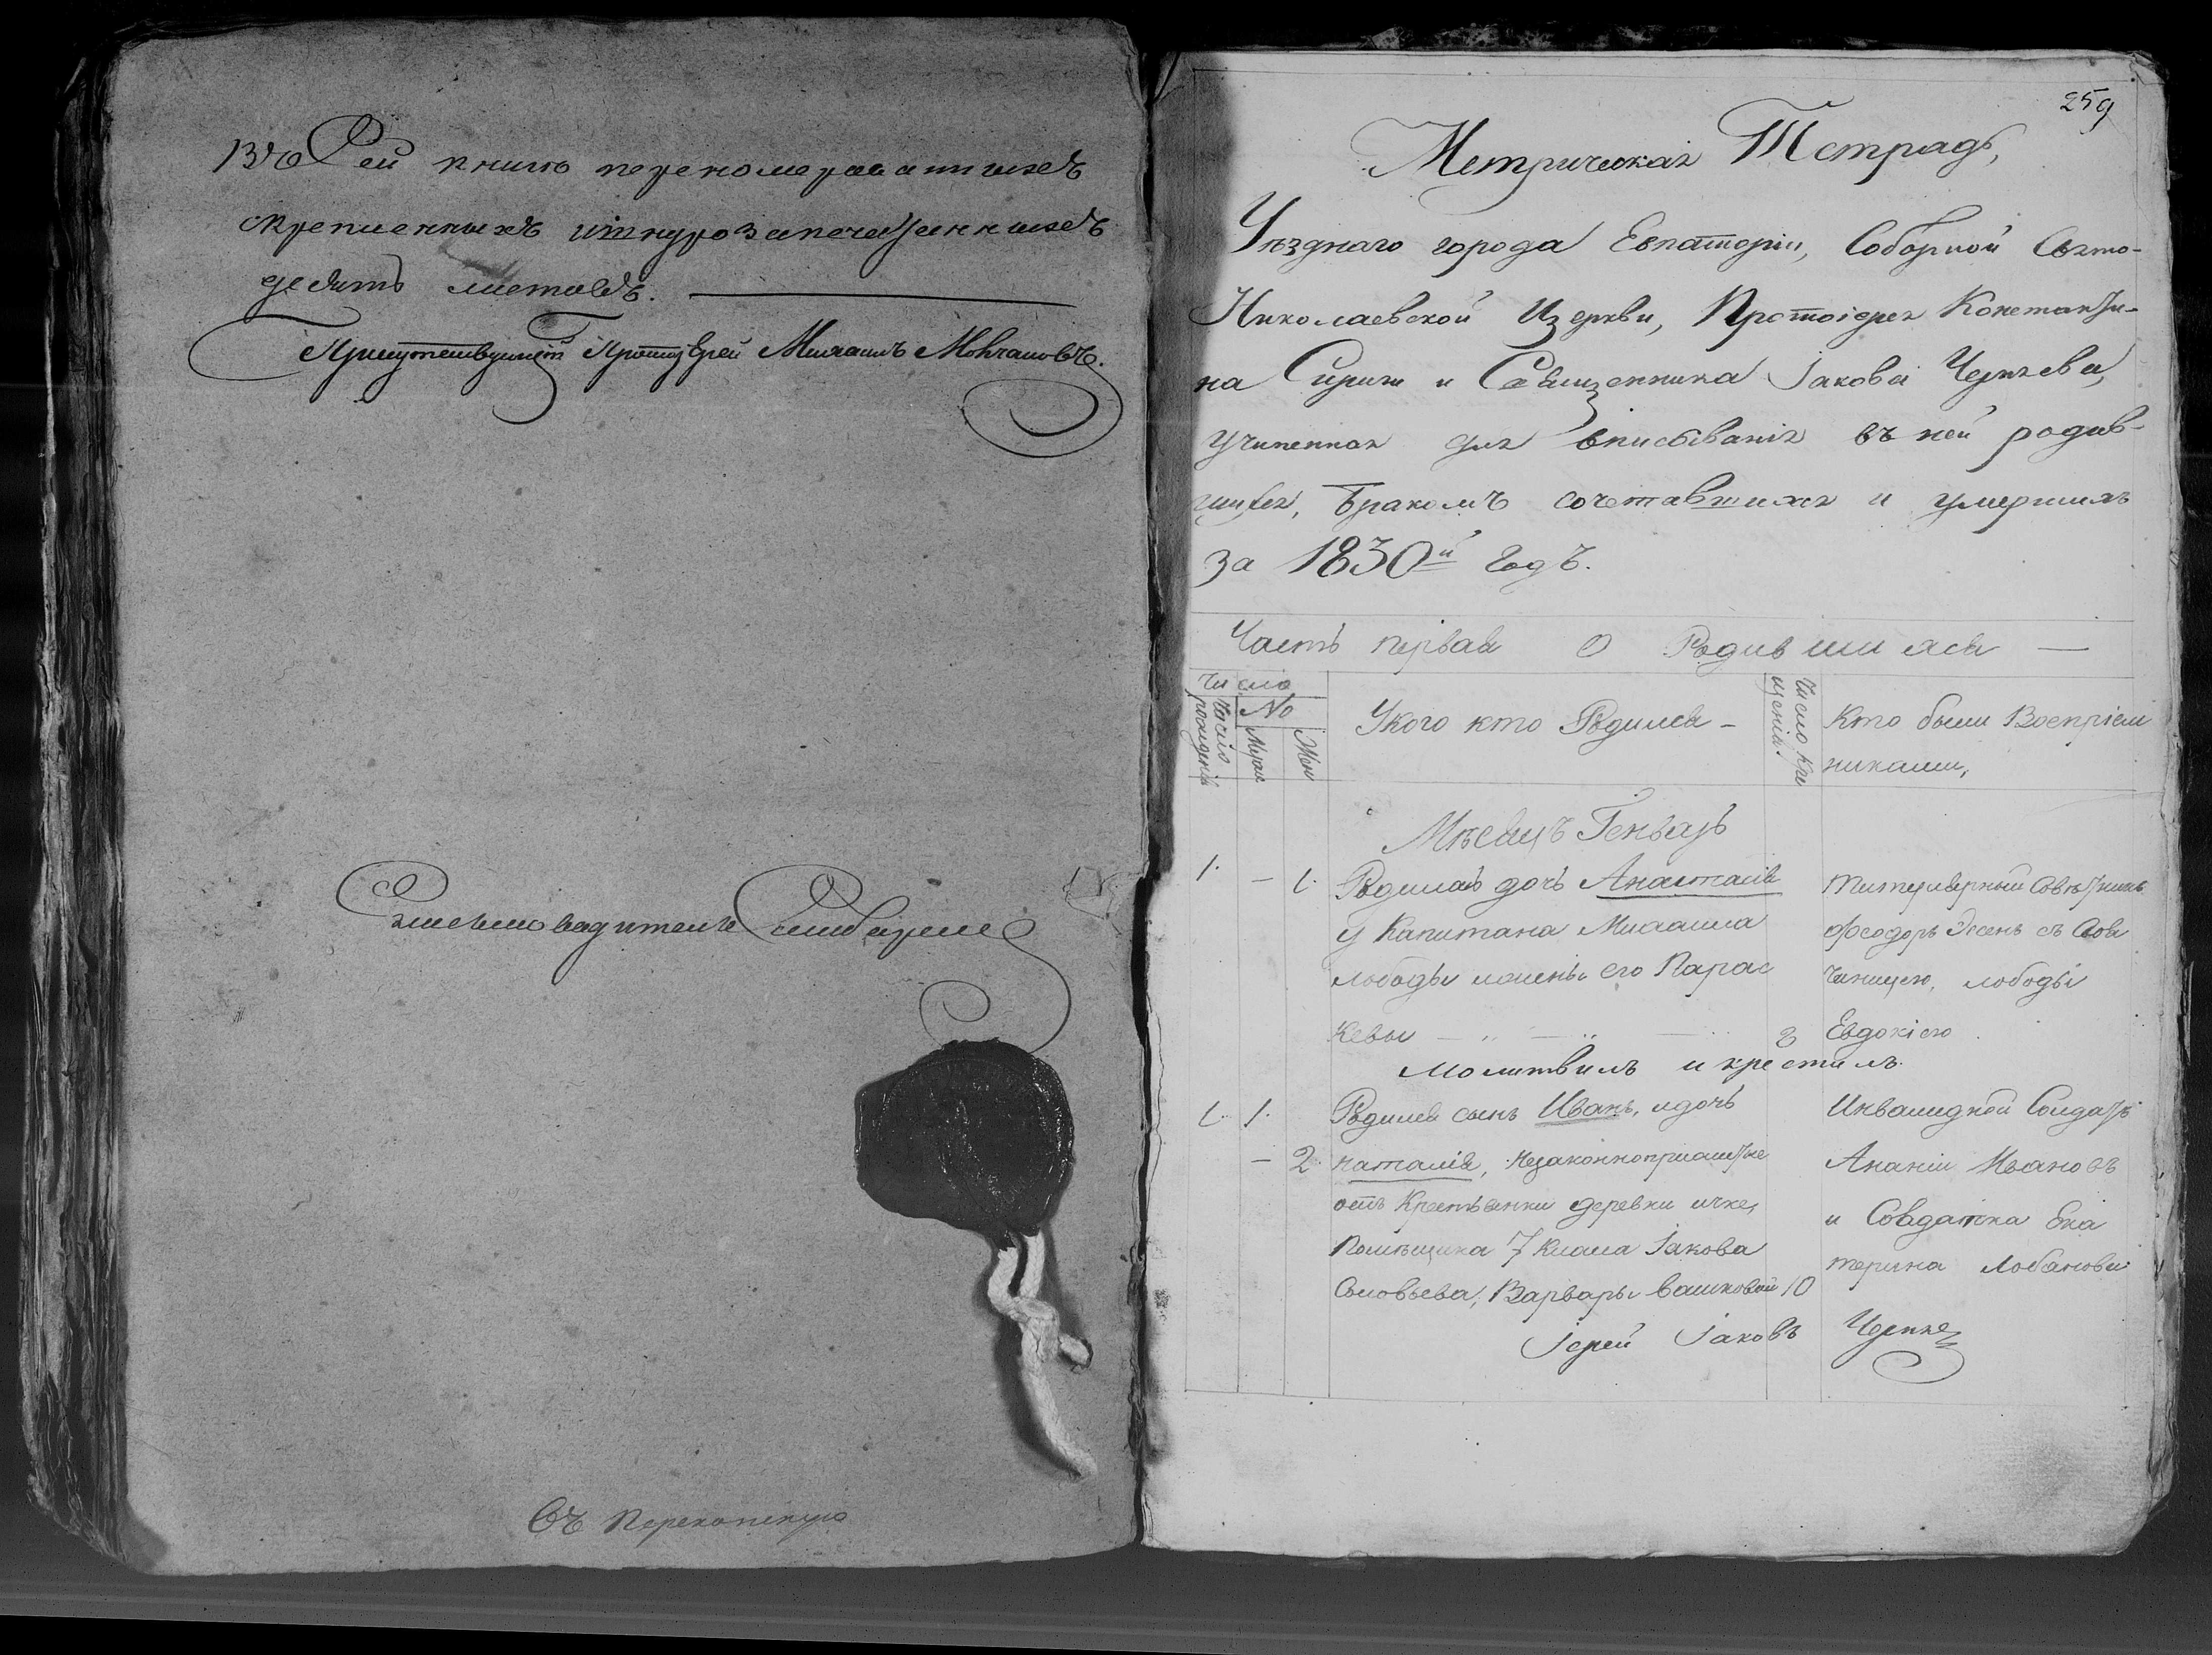 Въ сей книге перенумерованныхъ
скрепленныхъ и шнурозапечатанныхъ
десять листовъ.
Присутствующій Протоіерей Михаилъ Мочановъ.
Письмоводитель
Въ Перекопскую
259
Метрическая Тетрадь,
Уѣзднаго города Евпаторіи, Соборной Свято-
Николаевской Церкви, Протоіерея Константи-
на Спири и Священника Іакова Чернева,
учиненная для вписыванія въ ней родив-
шихся, бракомъ сочетавшихся и умершихъ
за 1830й годъ.
Часть первая О Родившихся —
Число
Число рожденія
№
Муж
Жен
У кого кто Родился -
Число кре
щенія
Кто были Воспріем
никами,
Мѣсяцъ Генварь
1. — 1. Родилась дочь Анастасія
у Капитана Михаила
лободы и жены его Парас
кевы 3
титулярный Совѣтникъ
Феодоръ Эсенъ съ
чиницею, лободы
Евдокіею
Молитвилъ и крестилъ.
1. 1. Родился сынъ Иванъ, и дочь
— 2. наталія, незаконноприжитые
отъ Крестьянки деревни ичке,
Помѣщика 7 Класа Іакова
Соловьева, Варвары Вашковой 10
Инвалидной Солдатъ
Ананіи Ивановъ
и Солдатка Ека
терина Лобанова
Іерей Іаковъ Чернев